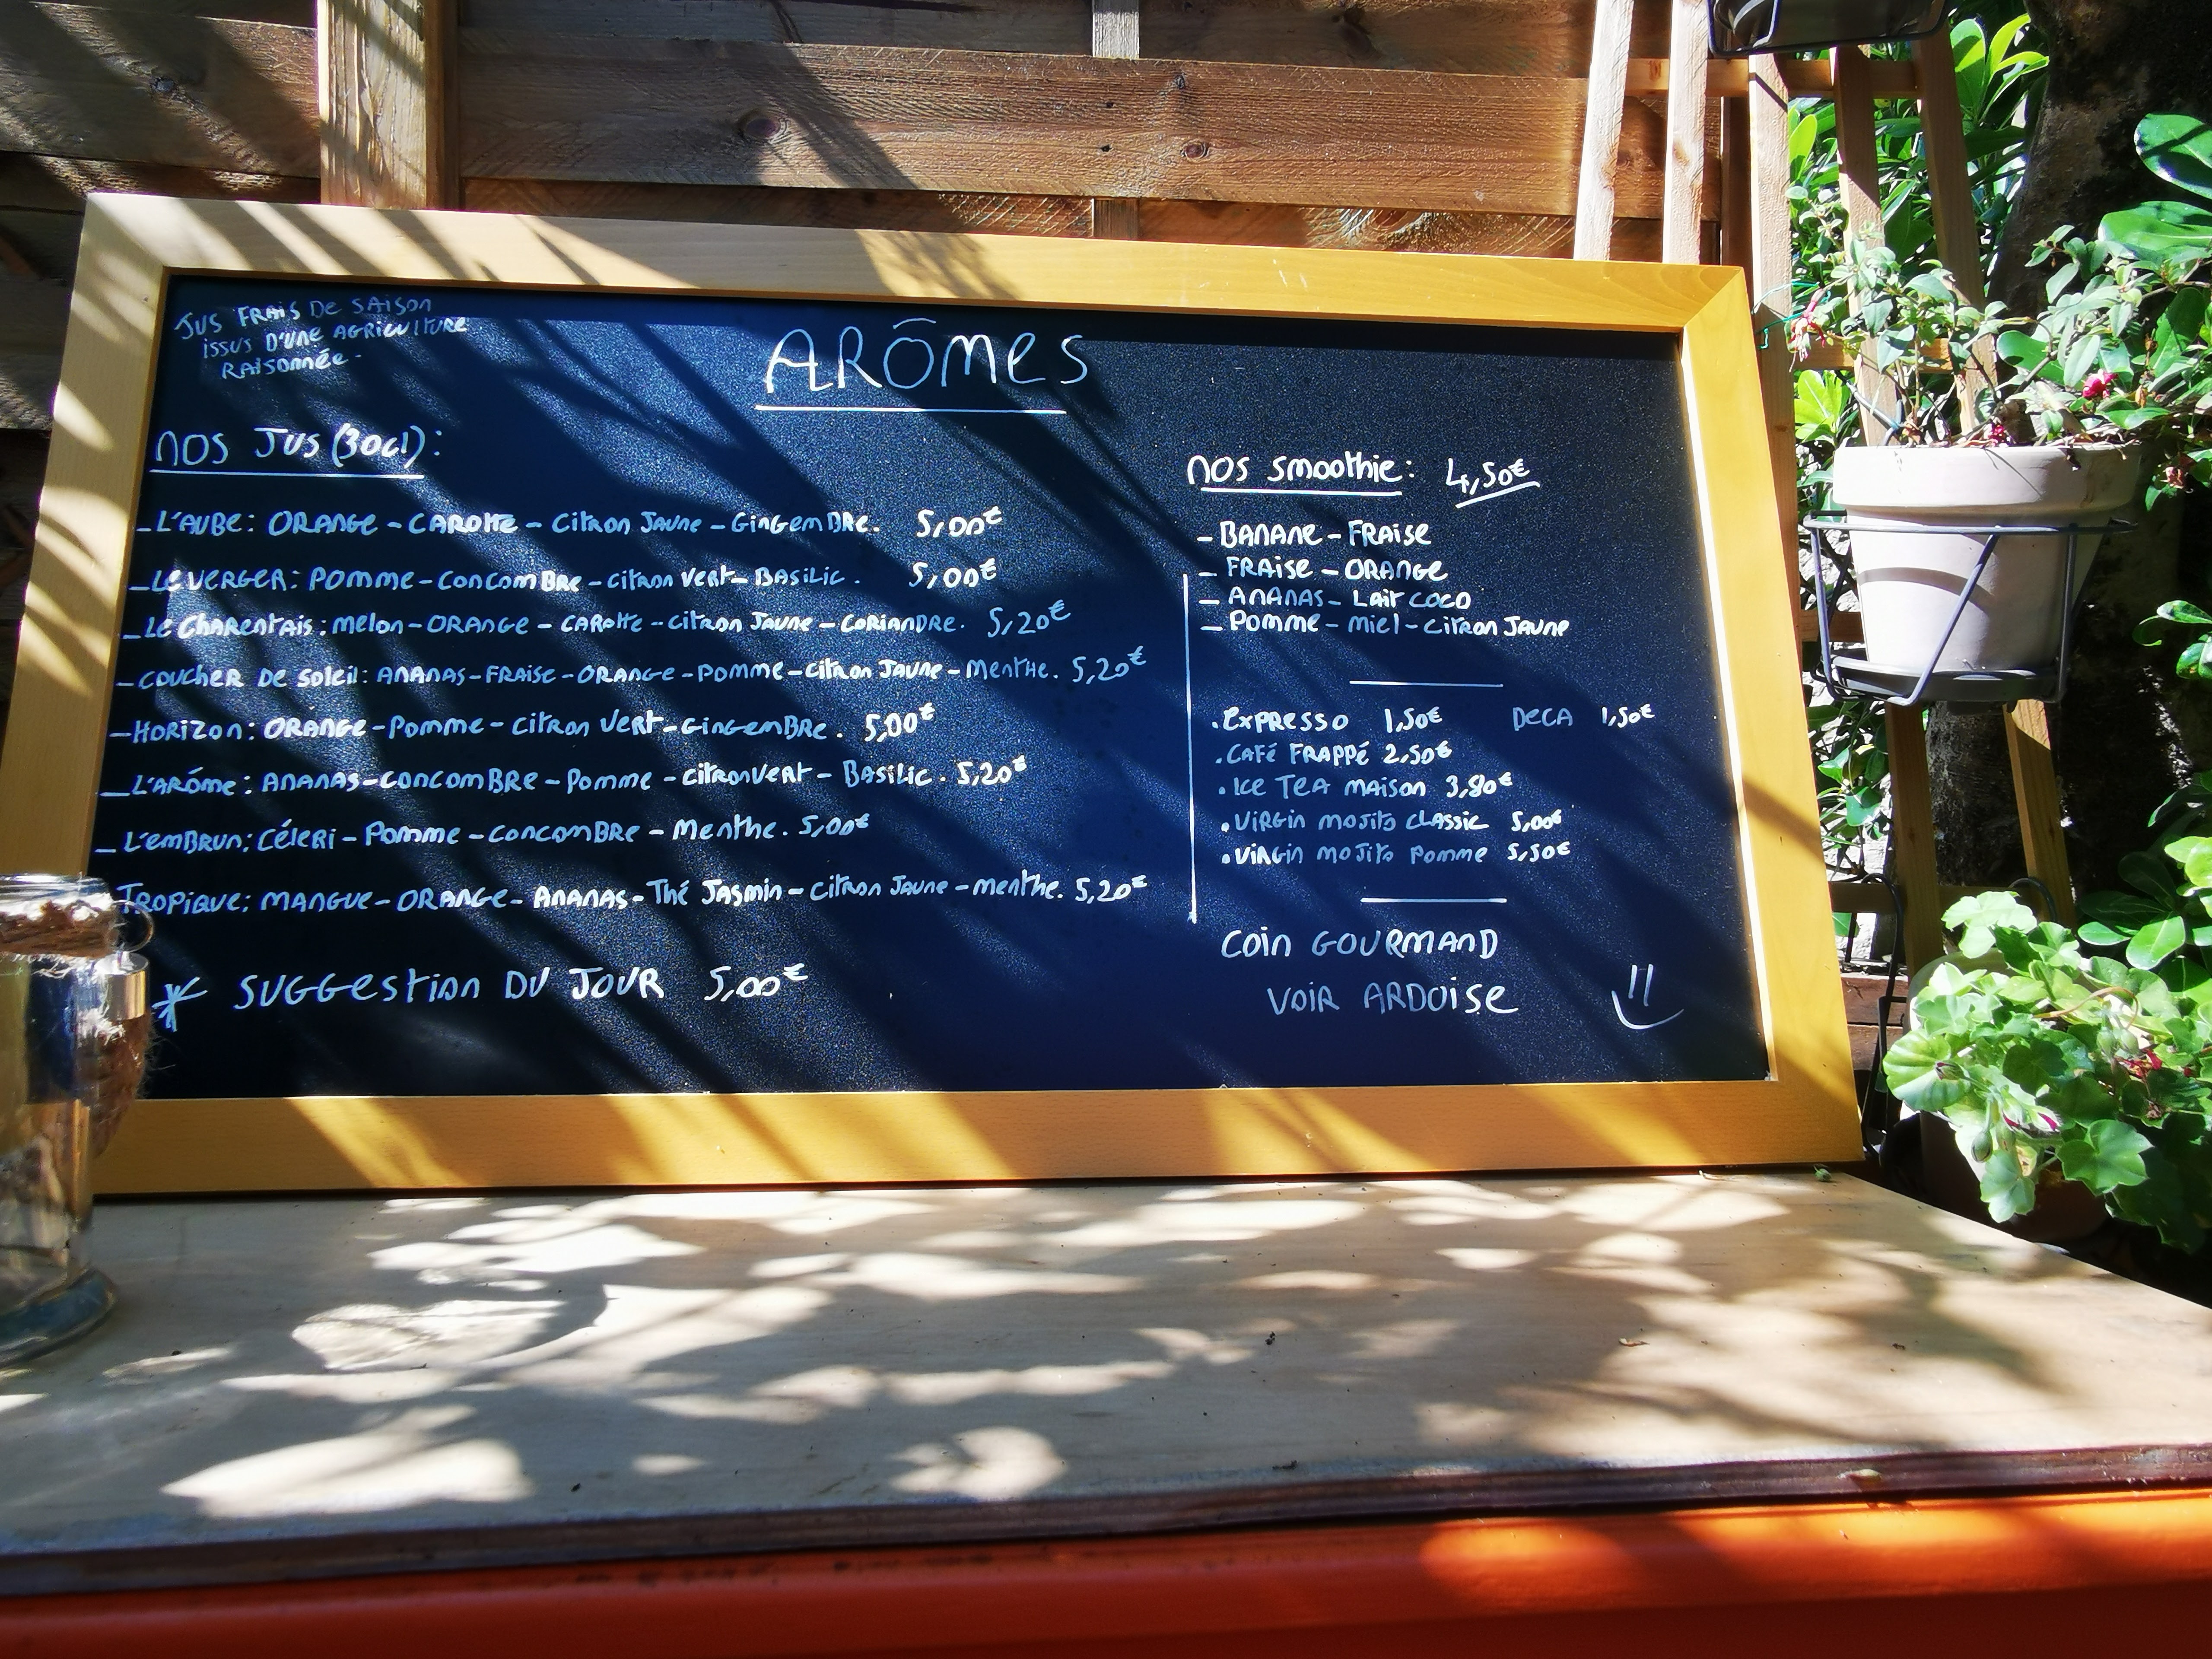 JUS FRAIS DE SAISON
ISSUS D'UNE AGRICULTURE
RAISONNÉE.
ARÔMES
NOS JUS (30cl):
- L'AUBE: ORANGE - CAROTTE - CITRON JAUNE - GINGEMBRE. 5,00€
- LE VERGER: POMME - CONCOMBRE - CITRON VERT - BASILIC. 5,00€
- LE CHARENTAIS: MELON - ORANGE - CAROTTE - CITRON JAUNE - CORIANDRE. 5,20€
- COUCHER DE SOLEIL: ANANAS - FRAISE - ORANGE - POMME - CITRON JAUNE - MENTHE. 5,20€
- HORIZON: ORANGE - POMME - CITRON VERT - GINGEMBRE. 5,00€
- L'ARÔME: ANANAS - CONCOMBRE - POMME - CITRON VERT - BASILIC. 5,20€
- L'EMBRUN: CÉLERI - POMME - CONCOMBRE - MENTHE. 5,00€
TROPIQUE: MANGUE - ORANGE - ANANAS - THÉ JASMIN - CITRON JAUNE - MENTHE. 5,20€
* SUGGESTION DU JOUR 5,00€
NOS SMOOTHIE: 4,50€
- BANANE - FRAISE
- FRAISE - ORANGE
- ANANAS - LAIT COCO
- POMME - MIEL - CITRON JAUNE
. EXPRESSO 1,50€ DECA 1,50€
. CAFÉ FRAPPÉ 2,50€
. ICE TEA MAISON 3,80€
. VIRGIN MOJITO CLASSIC 5,00€
. VIRGIN MOJITO POMME 5,50€
COIN GOURMAND
VOIR ARDOISE